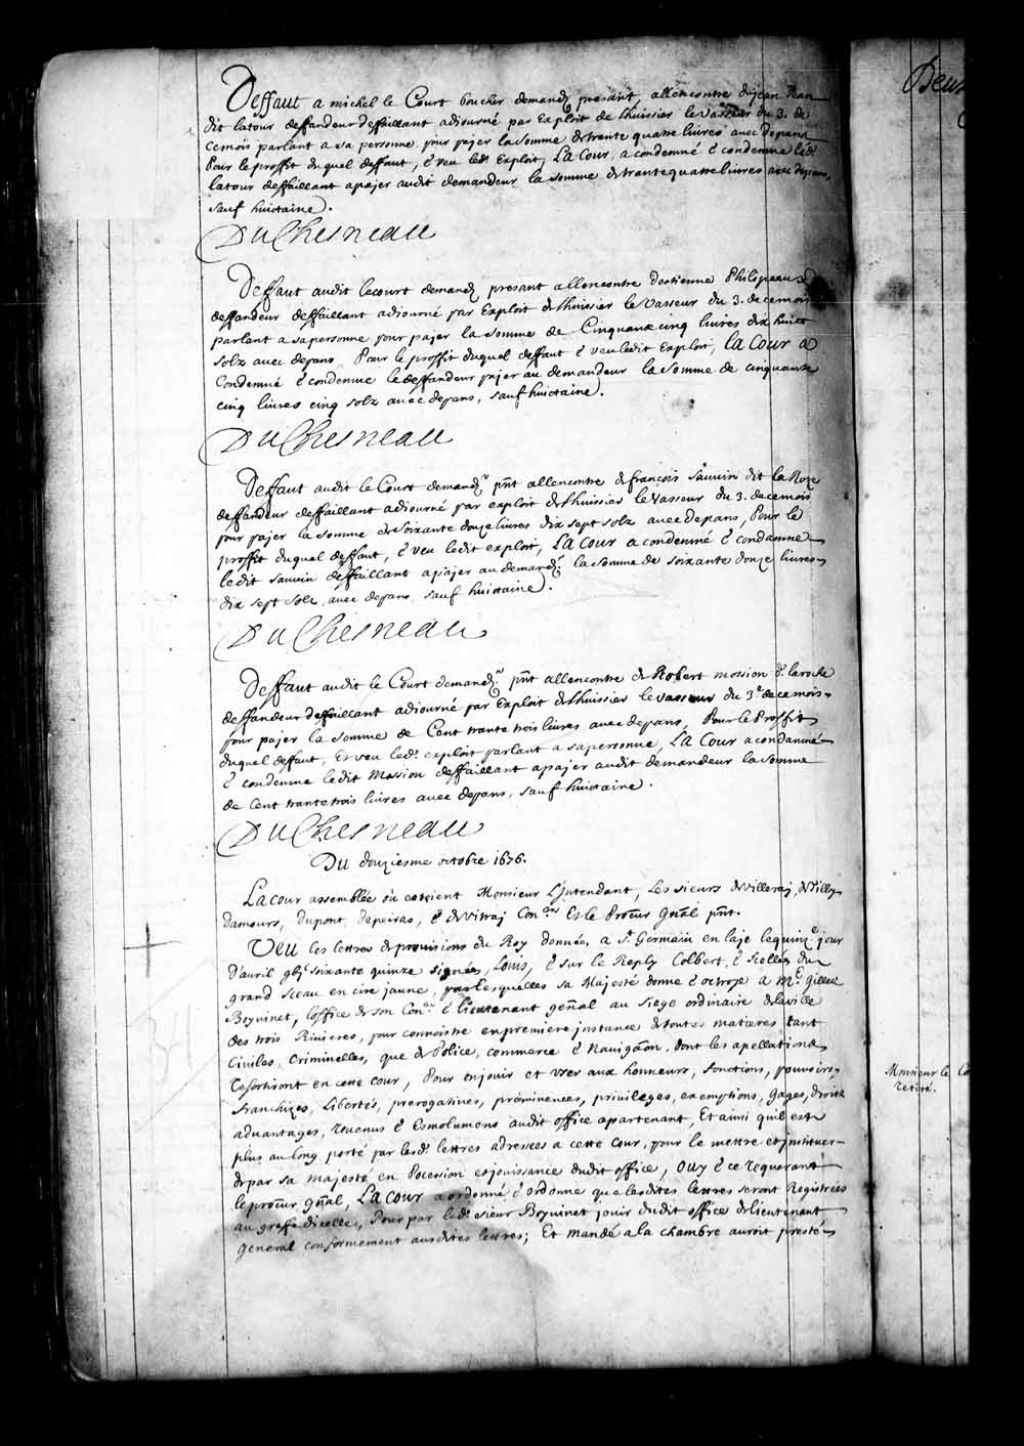 Deffaut a michel le Court boucher demandr presant, allencontre de jean Jean
dit latour deffandeur deffaillant adiourné par Exploit de lhuissier levasseur du 3. de
cemois parlant a sa personne pour payer la somme de trante quatre liures auec depans
Pour le proffit duquel deffaut, & veu led. Exploit, La Cour a condemné & condemne led.
latour deffaillant a payer audit demandeur la somme de trante quatre liures auec depans,
sauf huictaine.
DuChesneau
Deffaut audit lecourt demandr presant allencontre destienne Philipeau
deffandeur deffaillant adiourné par Exploit de lhuissier le Vasseur du 3. decemois
parlant a sa personne pour payer la somme de Cinquante cinq liures dix huict
solz auec depans, Pour le proffit duquel deffaut & veu ledit Exploit, La Cour a
Condemné & condemne le deffandeur payer au demandeur la somme de cinquante
cinq liures cinq solz auec depans, sauf huictaine.
DuChesneau
Deffaut audit le Court demandr pnt allencontre de françois Sauuin dit la Roze
deffandeur deffaillant adiourné par exploit de lhuissier le Vasseur du 3. decemois
pour payer la somme de Soixante douze liures dix sept solz auec depans, Pour le
proffit duquel deffaut, & veu ledit exploit, La Cour a condemné & condamne
ledit sauuin deffaillant a payer au demandr. la somme de soixante douze liures
dix sept solz auec depans sauf huictaine.
DuChesneau
Deffaut audit le Court demandr. pnt allencontre de Robert mossion d. laroche
deffandeur deffaillant adiourné par Exploit de lhuissier levasseur du 3e decemois
pour payer la somme de Cent trante trois liures auec depans, Pour le Proffit
duquel deffaut, Et veu led. exploit parlant a sa personne, La Cour a condamné
& condemne ledit Mossion deffaillant a payer audit demandeur la somme
de Cent trante trois liures auec depans, sauf huictaine.
DuChesneau
Du douziesme octobre 1676.
La cour assemblée où estoient Monsieur L'Jntendant, Les sieurs de Villeray, de Tilly
damours, dupont, depeiras, & de Vitray Coners Et le Procur gñal pnt.
Veu les lettres de prouisions du Roy données a St. Germain en laye le quinze. jour
D'auril gbjc soixante quinze signées, Louis, & sur le Reply Colbert, & scellées du
grand sceau en cire jaune, par lesquelles sa Majesté donne & octroye a Me. Gilles
Boyuinet, l'office de son Coner. & lieutenant genal au siege ordinaire de laville
des trois Riuieres, pour connoistre en premiere jnstance de toutes matieres tant
Ciuiles, Criminelles, que de Police, commerce & Nauigaon, dont les apellations
resortiront en cette cour, Pour en jouir et vser aux honneurs, fonctions, pouuoirs,
franchizes, Libertés, prerogatiues, préminences, priuileges, exemptions, gages, droits
aduantages, reuenus & Esmolumens audit office apartenant, Et ainsi quil est
plus au long porté par lesd. lettres adressées a cette Cour, pour le mettre et jnstituer
de par sa majesté en Pocession et jouissance dudit office, ouy & ce requerant
le procur gñal, La Cour a ordonné & ordonne que lesdites lettres seront Registrées
au greffe dicelle, Pour par led. sieur Boyuinet jouir dudit office de lieutenant
General conformement ausdites lettres; Et mandé a la chambre auroit presté
Monsieur le
retiré.